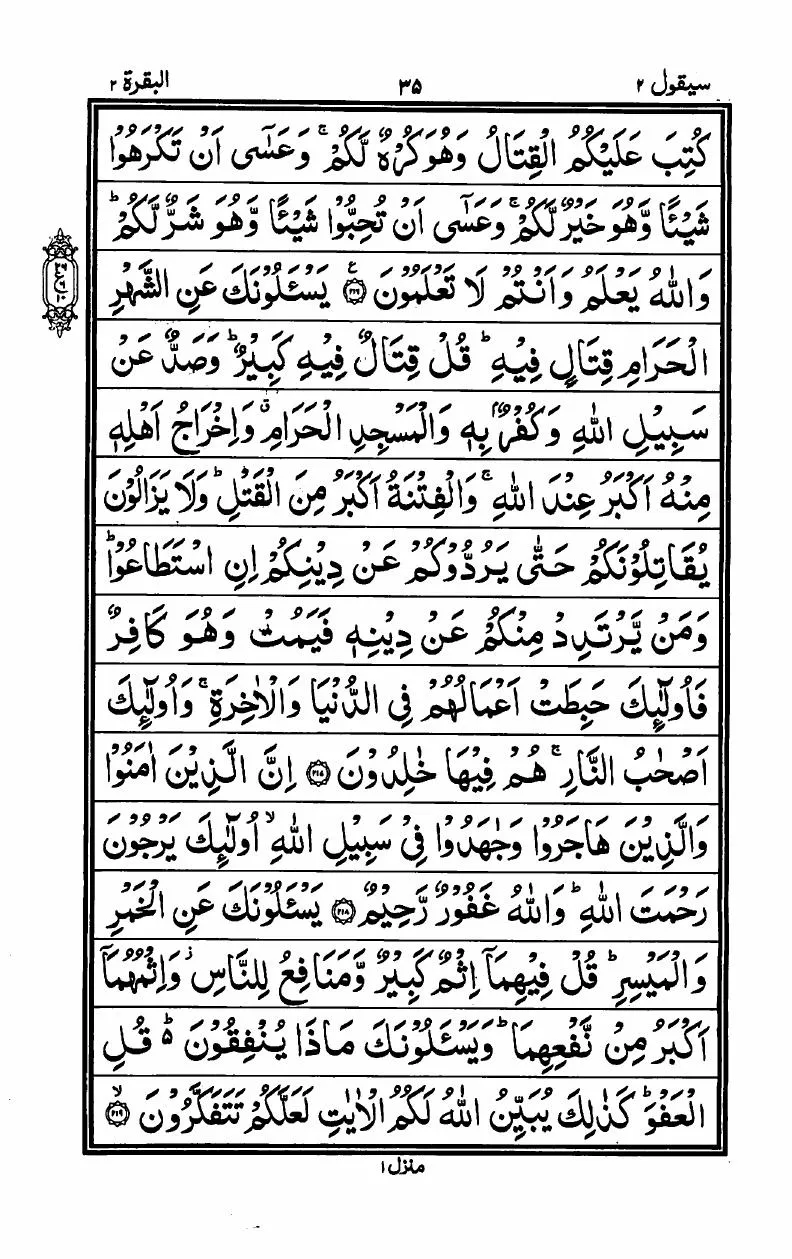 سیقول ٢ ٣٥ البقرة ٢
كُتِبَ عَلَيْكُمُ الْقِتَالُ وَهُوَ كُرْهٌ لَّكُمْ ۚ وَعَسٰٓى اَنْ تَكْرَهُوْا
شَيْـًٔا وَّهُوَ خَيْرٌ لَّكُمْ ۚ وَعَسٰٓى اَنْ تُحِبُّوْا شَيْـًٔا وَّهُوَ شَرٌّ لَّكُمْ ؕ
وَاللّٰهُ يَعْلَمُ وَاَنْتُمْ لَا تَعْلَمُوْنَ ﴿٢١٦﴾ يَسْـَٔلُوْنَكَ عَنِ الشَّهْرِ
الْحَرَامِ قِتَالٍ فِيْهِ ؕ قُلْ قِتَالٌ فِيْهِ كَبِيْرٌ ؕ وَصَدٌّ عَنْ
سَبِيْلِ اللّٰهِ وَكُفْرٌۢ بِهٖ وَالْمَسْجِدِ الْحَرَامِ ۗ وَاِخْرَاجُ اَهْلِهٖ
مِنْهُ اَكْبَرُ عِنْدَ اللّٰهِ ۚ وَالْفِتْنَةُ اَكْبَرُ مِنَ الْقَتْلِ ؕ وَلَا يَزَالُوْنَ
يُقَاتِلُوْنَكُمْ حَتّٰى يَرُدُّوْكُمْ عَنْ دِيْنِكُمْ اِنِ اسْتَطَاعُوْا ؕ
وَمَنْ يَّرْتَدِدْ مِنْكُمْ عَنْ دِيْنِهٖ فَيَمُتْ وَهُوَ كَافِرٌ
فَاُولٰٓئِكَ حَبِطَتْ اَعْمَالُهُمْ فِي الدُّنْيَا وَالْاٰخِرَةِ ۚ وَاُولٰٓئِكَ
اَصْحٰبُ النَّارِ ۚ هُمْ فِيْهَا خٰلِدُوْنَ ﴿٢١٧﴾ اِنَّ الَّذِيْنَ اٰمَنُوْا
وَالَّذِيْنَ هَاجَرُوْا وَجٰهَدُوْا فِيْ سَبِيْلِ اللّٰهِ ۙ اُولٰٓئِكَ يَرْجُوْنَ
رَحْمَتَ اللّٰهِ ؕ وَاللّٰهُ غَفُوْرٌ رَّحِيْمٌ ﴿٢١٨﴾ يَسْـَٔلُوْنَكَ عَنِ الْخَمْرِ
وَالْمَيْسِرِ ؕ قُلْ فِيْهِمَآ اِثْمٌ كَبِيْرٌ وَّمَنَافِعُ لِلنَّاسِ ۫ وَاِثْمُهُمَآ
اَكْبَرُ مِنْ نَّفْعِهِمَا ؕ وَيَسْـَٔلُوْنَكَ مَاذَا يُنْفِقُوْنَ ؕ۬ قُلِ
الْعَفْوَ ؕ كَذٰلِكَ يُبَيِّنُ اللّٰهُ لَكُمُ الْاٰيٰتِ لَعَلَّكُمْ تَتَفَكَّرُوْنَ ۙ﴿٢١٩﴾
منزل ١